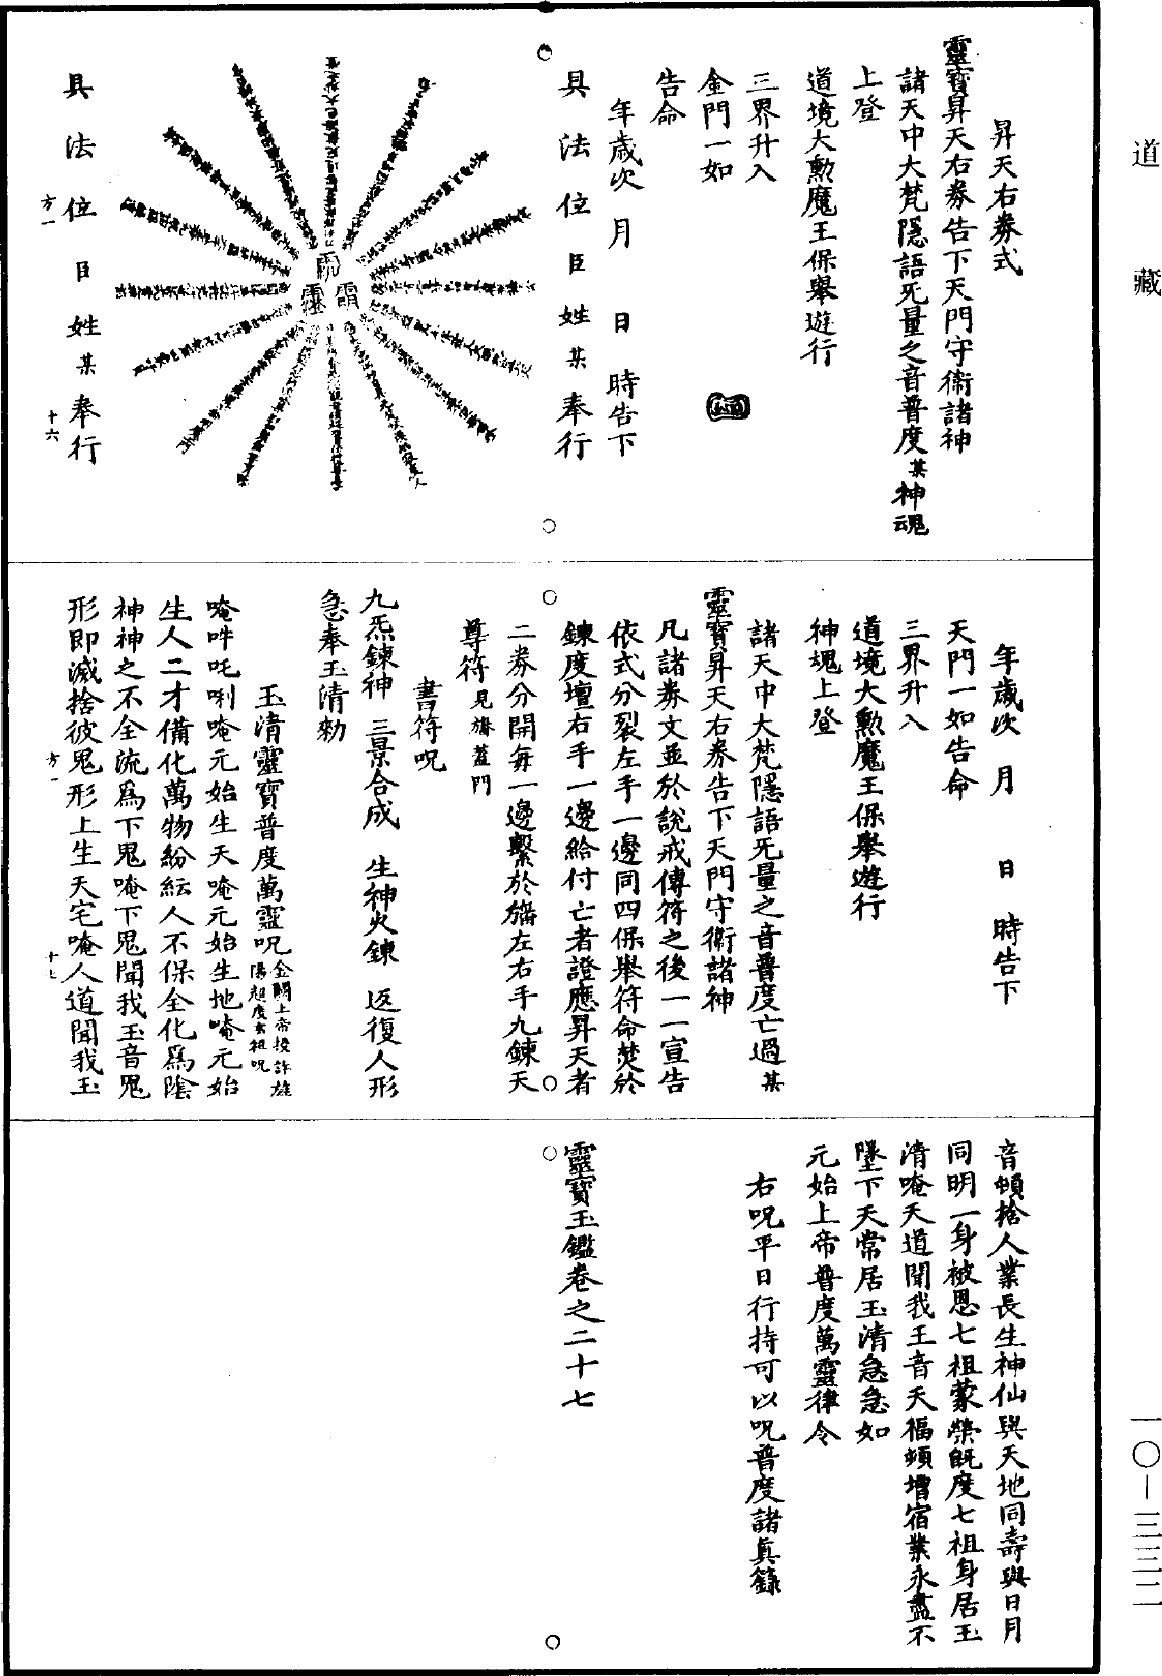 道藏
昇天右券式
靈寶昇天右券告下天門守衞諸神
諸天中大梵隱語无量之音普度某神魂
上登
道境大勲魔王保舉遊行
三界升入
金門一如
告命
年歲次 月 日 時告下
具法位臣姓某奉行
具法位臣姓某奉行
方一 十六
年歲次 月 日 時告下
天門一如告命
三界升入
道境大勲魔王保舉遊行
神魂上登
諸天中大梵隱語无量之音普度亡過某
靈寶昇天右券告下天門守衞諸神
凡諸券文並於說戒傳符之後一一宣告
依式分裂左手一邊同四保舉符命焚於
鍊度壇右手一邊給付亡者證應昇天者
二券分開每一邊繫於旛左右手九鍊天
尊符見旛蓋門
書符呪
九炁鍊神 三景合成 生神火鍊 返復人形
急奉玉清勑
玉清靈寶普度萬靈呪金闕上帝授許旌陽超度玄祖呪
唵吽吒唎唵元始生天唵元始生地唵元始
生人二才備化萬物紛紜人不保全化爲陰
神神之不全流爲下鬼唵下鬼聞我玉音鬼
形即滅捨彼鬼形上生天宅唵人道聞我玉
方一 十七
音頓捨人業長生神仙與天地同壽與日月
同明一身被恩七祖蒙榮旣度七祖身居玉
清唵天道聞我王音天福頓增宿業永盡不
墜下天常居玉清急急如
元始上帝普度萬靈律令
右呪平日行持可以呪普度諸眞籙
靈寶玉鑑卷之二十七
一〇—三三二